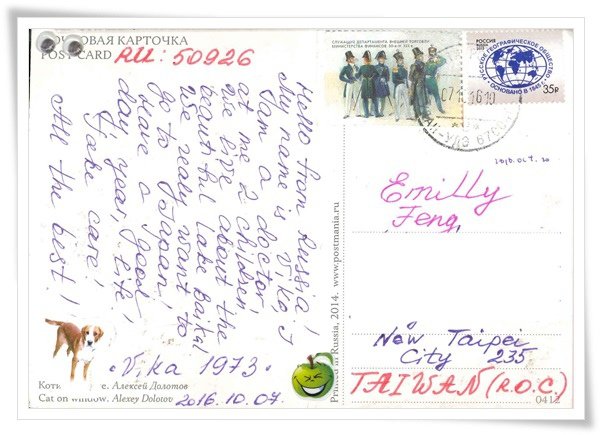 ПОЧТОВАЯ КАРТОЧКА
POST CARD
RU: 50926
СЛУЖАЩИЕ ДЕПАРТАМЕНТА ВНЕШНЕЙ ТОРГОВЛИ
МИНИСТЕРСТВА ФИНАНСОВ
РОССИЯ
RUSSIA
РУССКОЕ ГЕОГРАФИЧЕСКОЕ ОБЩЕСТВО
ОСНОВАНО В 1845 г.
35р
Hello from Russia!
My name is Vika, I
I am a doctor,
at me 2 children.
We live about the
beautiful lake Baikal
We realy want to
Go to Japan!
Have a Good
day, year, life!
Take care!
All the best!
Vika 1973
2016.10.07.
Emilly
Feng
New Taipei
City 235
TAIWAN (R.O.C)
Алексей Долотов
Cat on window. Alexey Dolotov
Printed in Russia, 2014. www.postmania.ru
0412